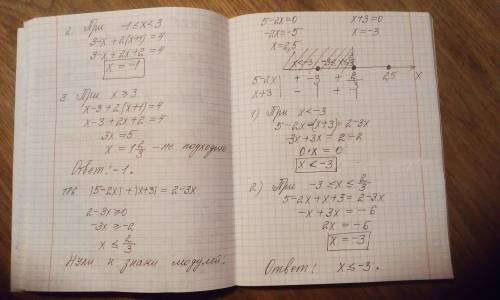 2. При -1≤x<3
3-x+2(x+1)=4
3-x+2x+2=4
x=-1
3. При x≥3
x-3+2(x+1)=4
x-3+2x+2=4
3x=5
x=1 2/3 - не подходит
Ответ: -1.
16. |5-2x|+|x+3|=2-3x
2-3x≥0
-3x≥-2
x≤2/3
Нули и знаки модулей:
5-2x=0 x+3=0
-2x=-5 x=-3
x=2,5
x<-3 -3≤x≤2/3
-3 2/3 2,5 x
5-2x + + +
x+3 - + +
1) При x<-3
5-2x-(x+3)=2-3x
-3x+3x=2-2
0·x=0
x<-3
2) При -3≤x≤2/3
5-2x+x+3=2-3x
-x+3x=-6
2x=-6
x=-3
Ответ: x≤-3.